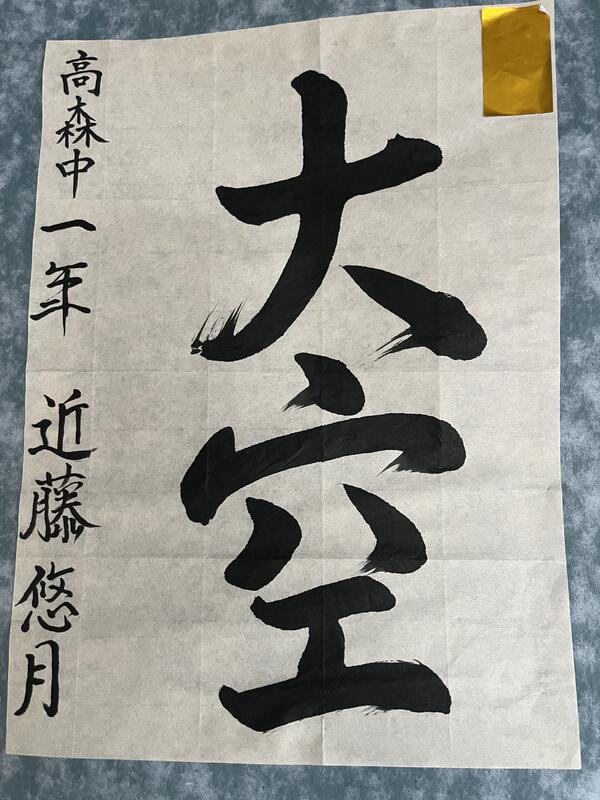 大空
高森中一年 近藤悠月